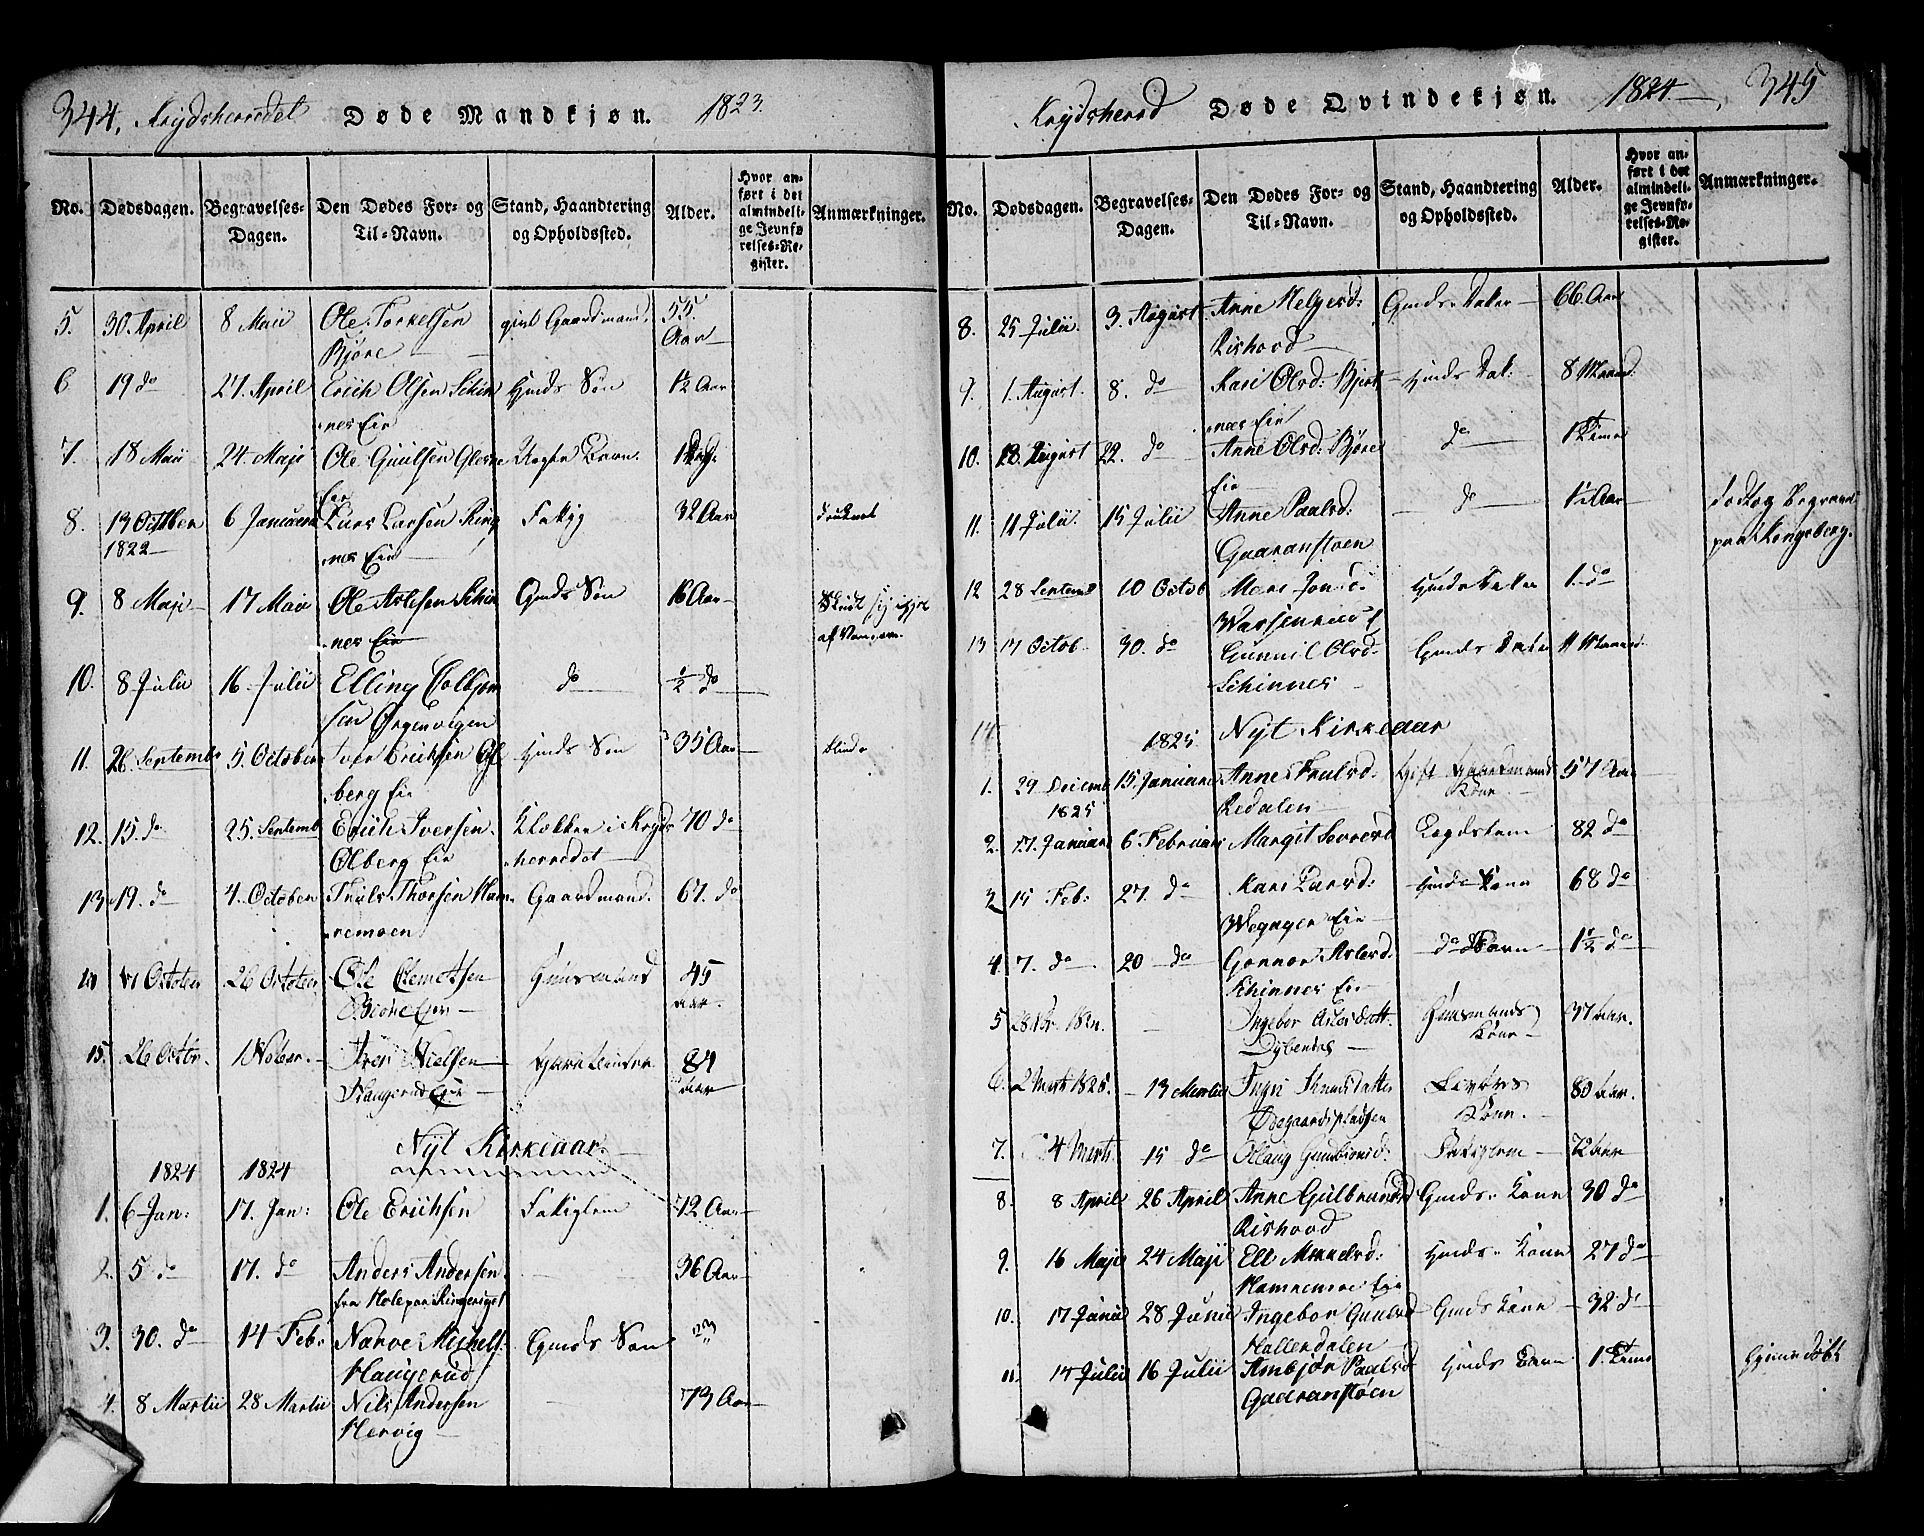 344. Krydsherredet Døde Mandkjøn. 1823.
No. Dødsdagen. Begravelses-Dagen. Den Dødes For- og Til-Navn. Stand, Haandtering og Opholdssted. Alder. Hvor anført i det almindelige Jevnførelses-Register. Anmærkninger.
5. 30. April 8 Maii Ole Torkelsen givt Gaardmand. 55. Aar
Bjøre
6 19 do 27. April Erich Olsen Schin Hmds Søn 1/2 Aar
nes Eie
7. 18 Maii 24. Maji Ole Guulsen Glesne
Eie
8. 13 Octtber 6 Januar Lars Larsen Ring Fattig 32 Aar druknet
1822 nes Eie
9. 8 Maji 17 Maii Ole Aslesen Schin Gmds Søn 16 Aar
nes Eie af Vangen
10. 8 Julii 16 Julii Elling Colbjørn do 1/2 do
sen Ørgenvigen
11. 26 Septembr 5. October Iver Erichsen Ol Hmds Søn 35 Aar blind
berg Eie
12. 15. do 25. Septemb Erich Iversen Klokker i Kryds 70 do
Olberg Eie herredet
13. 19. do 4. October Truls Thorsen Ham Gaardmand. 67. do
remoen
14 17 October 26 October Ole Clemetsen Huusmand 45
Bjøre Eie Aar.
15. 26 Octbr. 1 Nobem. Iver Nielsen 84
Haugerud Eie Aar
Nyt Kirkeaar
1824 1824
1. 6 Jan: 17. Jan: Ole Erichsen Fattiglem 72 Aar
2. 5 do 17. do Anders Andersen 36 Aar
fra Hole paa Ringeriget
3. 30. do 14 Feb: Narve Michels: Gmds Søn
Haugerud
4. 8 Martii 28 Martii Nils Andersen 73 Aar
Hervig
Krydsherred Døde Qvindekjøn. 1824. 345
No. Dødsdagen. Begravelses-Dagen. Den Dødes For- og Til-Navn. Stand, Haandtering og Opholdssted. Alder. Hvor anført i det almindelige Jevnførelses-Register. Anmærkninger.
8. 25 Julii. 3. August Anne Helgesd: Gmds Datter 66 Aar
Rishovd
9. 1. August. 8. do Kari Olsd: Bjert Hmds Dat: 8 Maaned.
næs Eie
10. 18. August 22. do Anne Olsd: Bjøre do 1 Time
Eie
11. 11 Julii. 15 Julii Anne Paalsd: do 1/2 Aar død og begravet
Gaaranstøen paa Kongsberg.
12 28 Septemb 10 Octob Mari Jonsd: Hmds Datter 1. do
13 17 Octob. 30. do Gunnil Olsd: Gmds Datter 11 Maaned.
Schinnes
14 1825 Nyt Kirkeaar
1. 29. Decemb 15. Januar Anne Trulsd. Gift Gaardmands 57 Aar
1825 Redalen Kone
2. 17. Januar 6 Februar Margit Sevresd Legdslem 82 do
3 15 Feb: 27. do Kari Larsd: Hmds Kone 68 do
Eie
4. 7. do 20 do Gonnor Aslesd. do Barn 1 1/2 do
Schinnes Eie
5 Ingebor Aslesdatt. Huusmands 37 Aar.
Kone
6. 2 Marts 1825. 13 Martii Ingri Knudsdatter 80 Aar.
Ødegaardspladsen Kone.
7. 4 Marts. 15 do Olaug Gundbiørsd: Fattiglem 72 Aar
8. 8 April 26 April Anne Gulbrandsd Gmds Kone 30 do
Rishovd
9. 16 Maji 24 Maji Eli Mikkelsd: Hmds Kone 27 do
Hamremoe Eie
10. 17 Junii 28 Junii Ingebor Guulsd Gmds Kone 32 do
Hallerdalen
11. 14 Julii 16 Julii Ambjør Paalsd Hmds Barn 1. Time Hjemmedøbt
Gaaranstøen